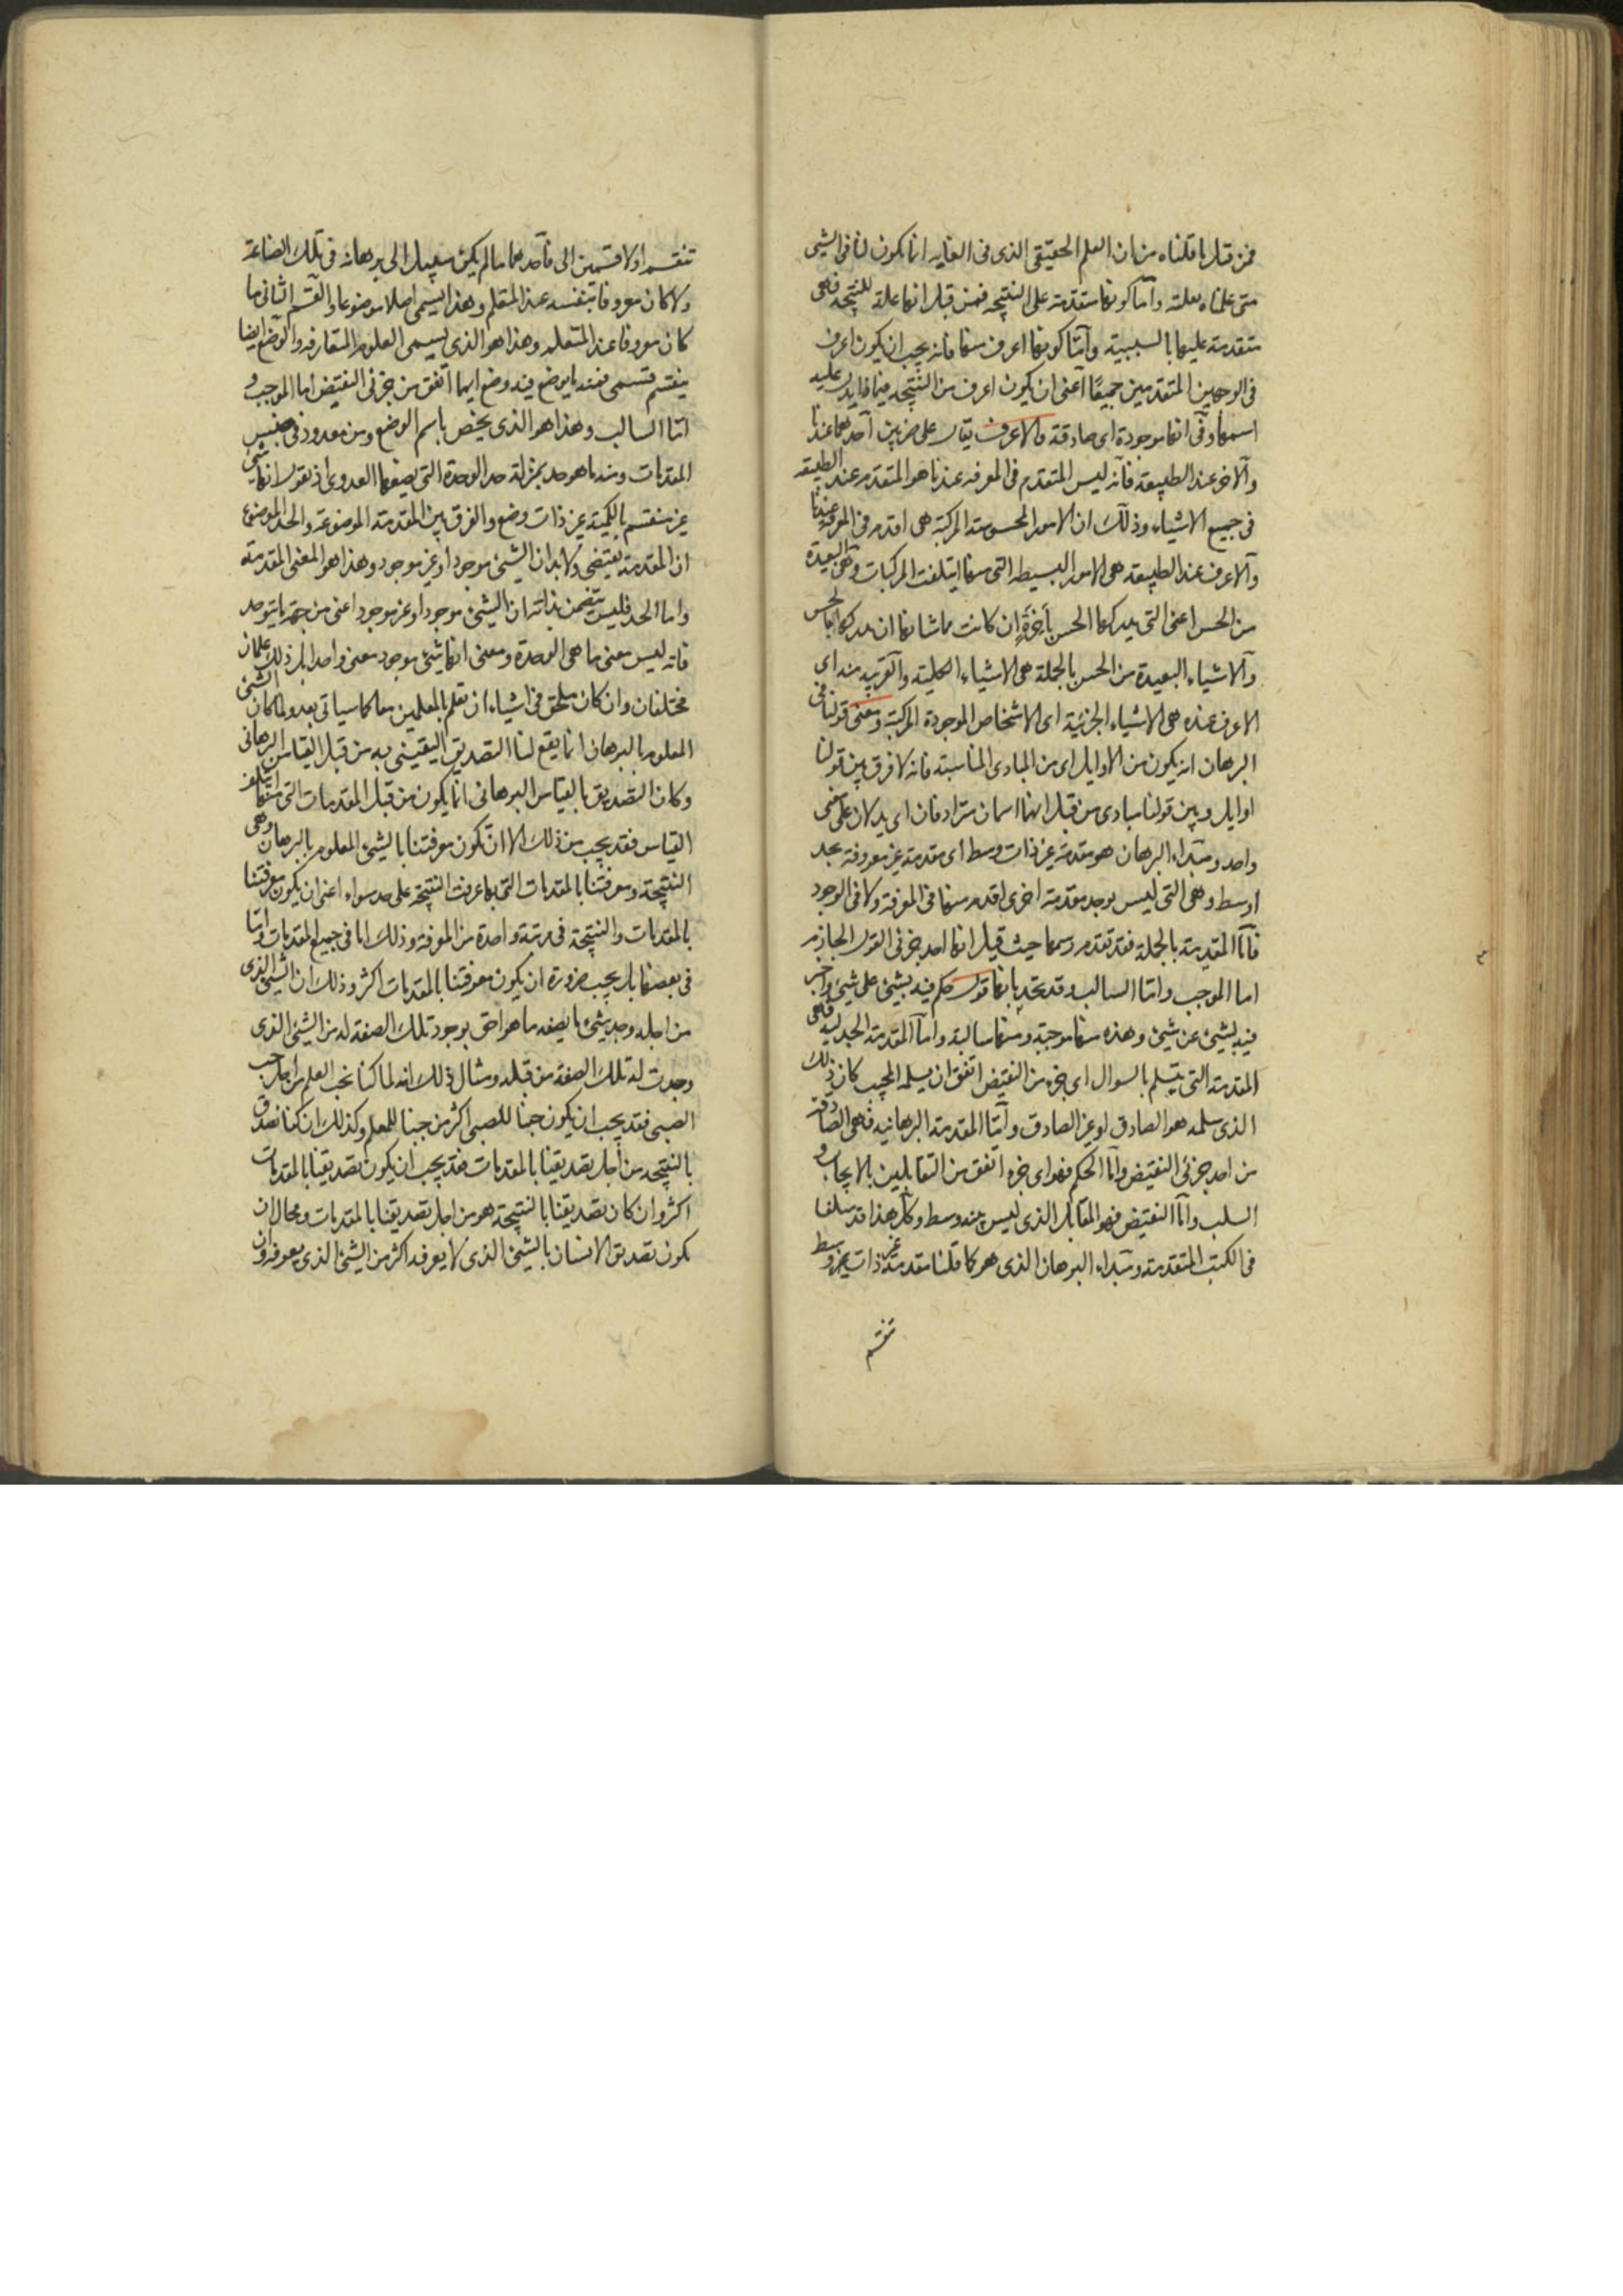 فمن قبل ما قلناه من ان العلم الحقيقى الذى فى الغايه انما يكون لنا فى الشئ
متى علمناه بعلته وآما كونها متقدمة على النتيجه فمن قبل انها علة للنتيجه فهى
متقدمة عليها بالسببية وآمّا كونها اعرف منها فانه يجب ان يكون اعرف
فى الوجهين المتقدمين جميعًا آعنى ان يكون اعرف من النتيجه فيما يدل عليه
اسمها وفى انها موجودة اى صادقة والاعرف يقال على ضربين آحدهما عندنا
وآلاخر عند الطبيعة فآنه ليس المتقدم فى المعرفه عندنا هو المتقدم عند الطبيعه
فى جميع الاشياء وذلك ان الامور المحسوسة المركبة هى اقدم فى المعرفة عندنا
وآلاعرف عند الطبيعه هى الامور البسيطه التى منها ايتلفت المركبات وهى البعيدة
من الحس اعنى التى يدركها الحس بأخرَةٍ ان كانت مما شانها ان يدركها الحس
وآلاشياء البعيدة من الحس بالجملة هى الاشياء الكلية وآلقريبه منه اى
الاعرف عنده هى الاشياء الجزئية اى الاشخاص الموجودة المركبة ومعنى قولنا فى
البرهان انه يكون من الاوايل اى من المبادى المناسبة فانه لا فرق بين قولنا
اوايل وبين قولنا مبادى من قبل انهما اسمان مترادفان اى يدلان على معنى
واحد ومبداء البرهان هو مقدمة غير ذات وسط اى مقدمة غير معروفة بحد
اوسط وهى التى ليس يوجد مقدمة اخرى اقدم منها فى المعرفة ولا فى الوجود
فآمّا المقدمة بالجملة فقد تقدم رسمها حيث قيل انها احد جزئى القول الجازم
اما الموجب واما السالب وقد تحد بانها قول حكم فيه بشئ على شئ واخبر
فيه بشئ عن شئ وهذه منها موجبة ومنها سالبة واما المقدمة الجدليه فهى
المقدمة التى يتسلم بالسوال اى جزء من النقيض اتفق ان يسلمه المجيب كان ذلك
الذى سلمه هو الصادق او غير الصادق وآمّا المقدمة البرهانيه فهى الصادقة
من احد جزئى النقيض وآمّا الحكم فهو اى جزء اتفق من المتقابلين بالايجاب و
السلب وآمّا النقيض فهو المقابل الذى ليس بينه وسط وكل هذا قد سلف
فى الكتب المتقدمة ومبداء البرهان الذى هو كما قلنا مقدمة غير ذات وسط
تنقسم
تنقسم اولا قسمين الى فآحدهما ما لم يكن سبيل الى برهانه فى تلك الصناعة
ولا كان معروفا بنفسه عند المتعلم وهذا يسمى اصلا موضوعا والقسم الثانى ما
كان معروفا عند المتعلم وهذا هو الذى يسمى العلوم المتعارفه والوضع ايضا
ينقسم قسمى فمنه ما يوضع فيه وضع ايما اتفق من جزئى النقيض اما الموجب و
امّا السالب وهذا هو الذى يخص باسم الوضع ومن معدود فى جنس
المقدمات ومنه ما هو حد بمنزلة حد الوحدة التى يضعها العددى اذ يقول انها شئ
غير منقسم بالكمية غير ذات وضع والفرق بين المقدمة الموضوعة والحد الموضوع
ان المقدمة يقتضى ولابد ان الشئ موجود او غير موجود وهذا هو المعنى المقدمة
واما الحد فليس يتضمن بذاته ان الشئ موجود او غير موجود اعنى من جهة ما يوحد
فانه ليس معنى ما هى الوحدة ومعنى انها شئ موجود معنى واحدا بل ذلك علمان
مختلفان وان كان يلحق فى اشياء ان تعلم بالمعلمين معا كما سياتى بعد ولما كان الشئ
المعلوم بالبرهان انما يقع لنا التصديق اليقينى به من قبل القياس البرهانى
وكان التصديق بالقياس البرهانى انما يكون من قبل المقدمات التى منها ايتلف
القياس فقد يجب من ذلك الا ان تكون معرفتنا بالشئ المعلوم بالبرهان وهى
النتيجة ومعرفتنا بالمقدمات التى بها عرفت النتيجة على حد سواء اعنى ان يكون معرفتنا
بالمقدمات والنتيجة فى مرتبة واحدة من المعرفة وذلك اما فى جميع المقدمات وامّا
فى بعضها بل يجب ضرورة ان يكون معرفتنا بالمقدمات اكثر وذلك ان الشئ الذى
من اجله وجد شئ ما بصفه ما هو احق بوجود تلك الصفة له من الشئ الذى
وجدت له تلك الصفة من قبله ومثال ذلك انه لما كنا نحب المعلم من اجل حب
الصبى فقد يجب ان يكون حبنا للصبى اكثر من حبنا للمعلم وكذلك ان كنا نصدق
بالنتيجه من أجل تصديقنا بالمقدمات فقد يجب ان يكون تصديقنا بالمقدمات
اكثر وان كان تصديقنا بالنتيجة هو من اجل تصديقنا بالمقدمات ومحال ان
يكون تصديق الانسان بالشئ الذى لا يعرفه اكثر من الشئ الذى يعرفه وان